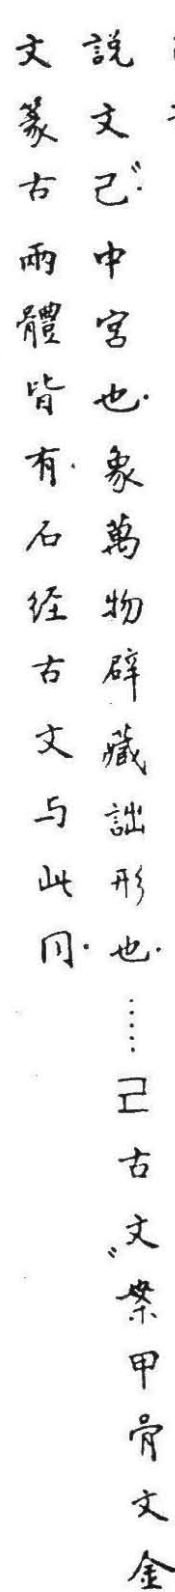 說文己〝中宮也.象萬物辟藏詘形也.……𢀒古文〞案甲骨文金
文篆古兩體皆有.石経古文与此同.